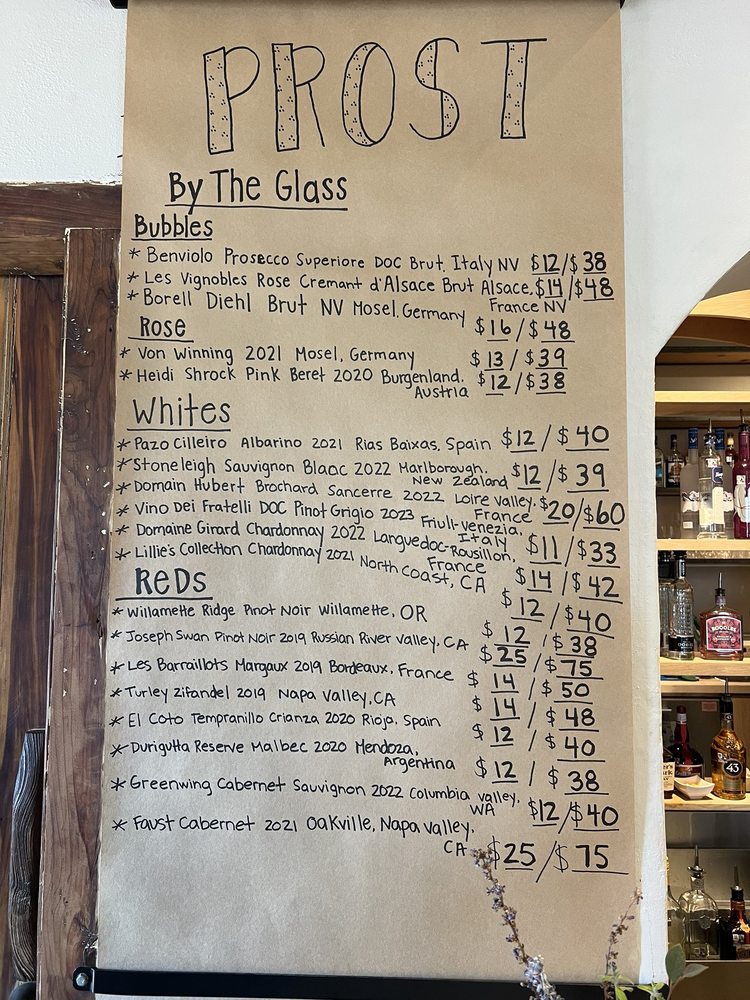 PROST
By The Glass
Bubbles
* Benviolo Prosecco Superiore DOC Brut, Italy NV $12/$38
* Les Vignobles Rose Cremant d'Alsace Brut Alsace, $14/$48
France NV
* Borell Diehl Brut NV Mosel, Germany $16/$48
Rose
* Von Winning 2021 Mosel, Germany $13/$39
* Heidi Shrock Pink Beret 2020 Burgenland, $12/$38
Austria
Whites
* Pazo Cilleiro Albarino 2021 Rias Baixas, Spain $12/$40
* Stoneleigh Sauvignon Blanc 2022 Marlborough, $12/$39
New Zealand
* Domain Hubert Brochard Sancerre 2022 Loire Valley, $20/$60
France
* Vino Dei Fratelli DOC Pinot Grigio 2023 Friuli-Venezia, $11/$33
Italy
* Domaine Girard Chardonnay 2022 Languedoc-Rousillon, $14/$42
France
* Lillie's Collection Chardonnay 2021 North Coast, CA $12/$40
Reds
* Willamette Ridge Pinot Noir Willamette, OR $12/$38
* Joseph Swan Pinot Noir 2019 Russian River Valley, CA $25/$75
* Les Barraillots Margaux 2019 Bordeaux, France $14/$50
* Turley Zifandel 2019 Napa Valley, CA $14/$48
* El Coto Tempranillo Crianza 2020 Rioja, Spain $12/$40
* Durigutta Reserve Malbec 2020 Mendoza, $12/$38
Argentina
* Greenwing Cabernet Sauvignon 2022 Columbia Valley, $12/$40
WA
* Faust Cabernet 2021 Oakville, Napa Valley,
CA $25/$75
43